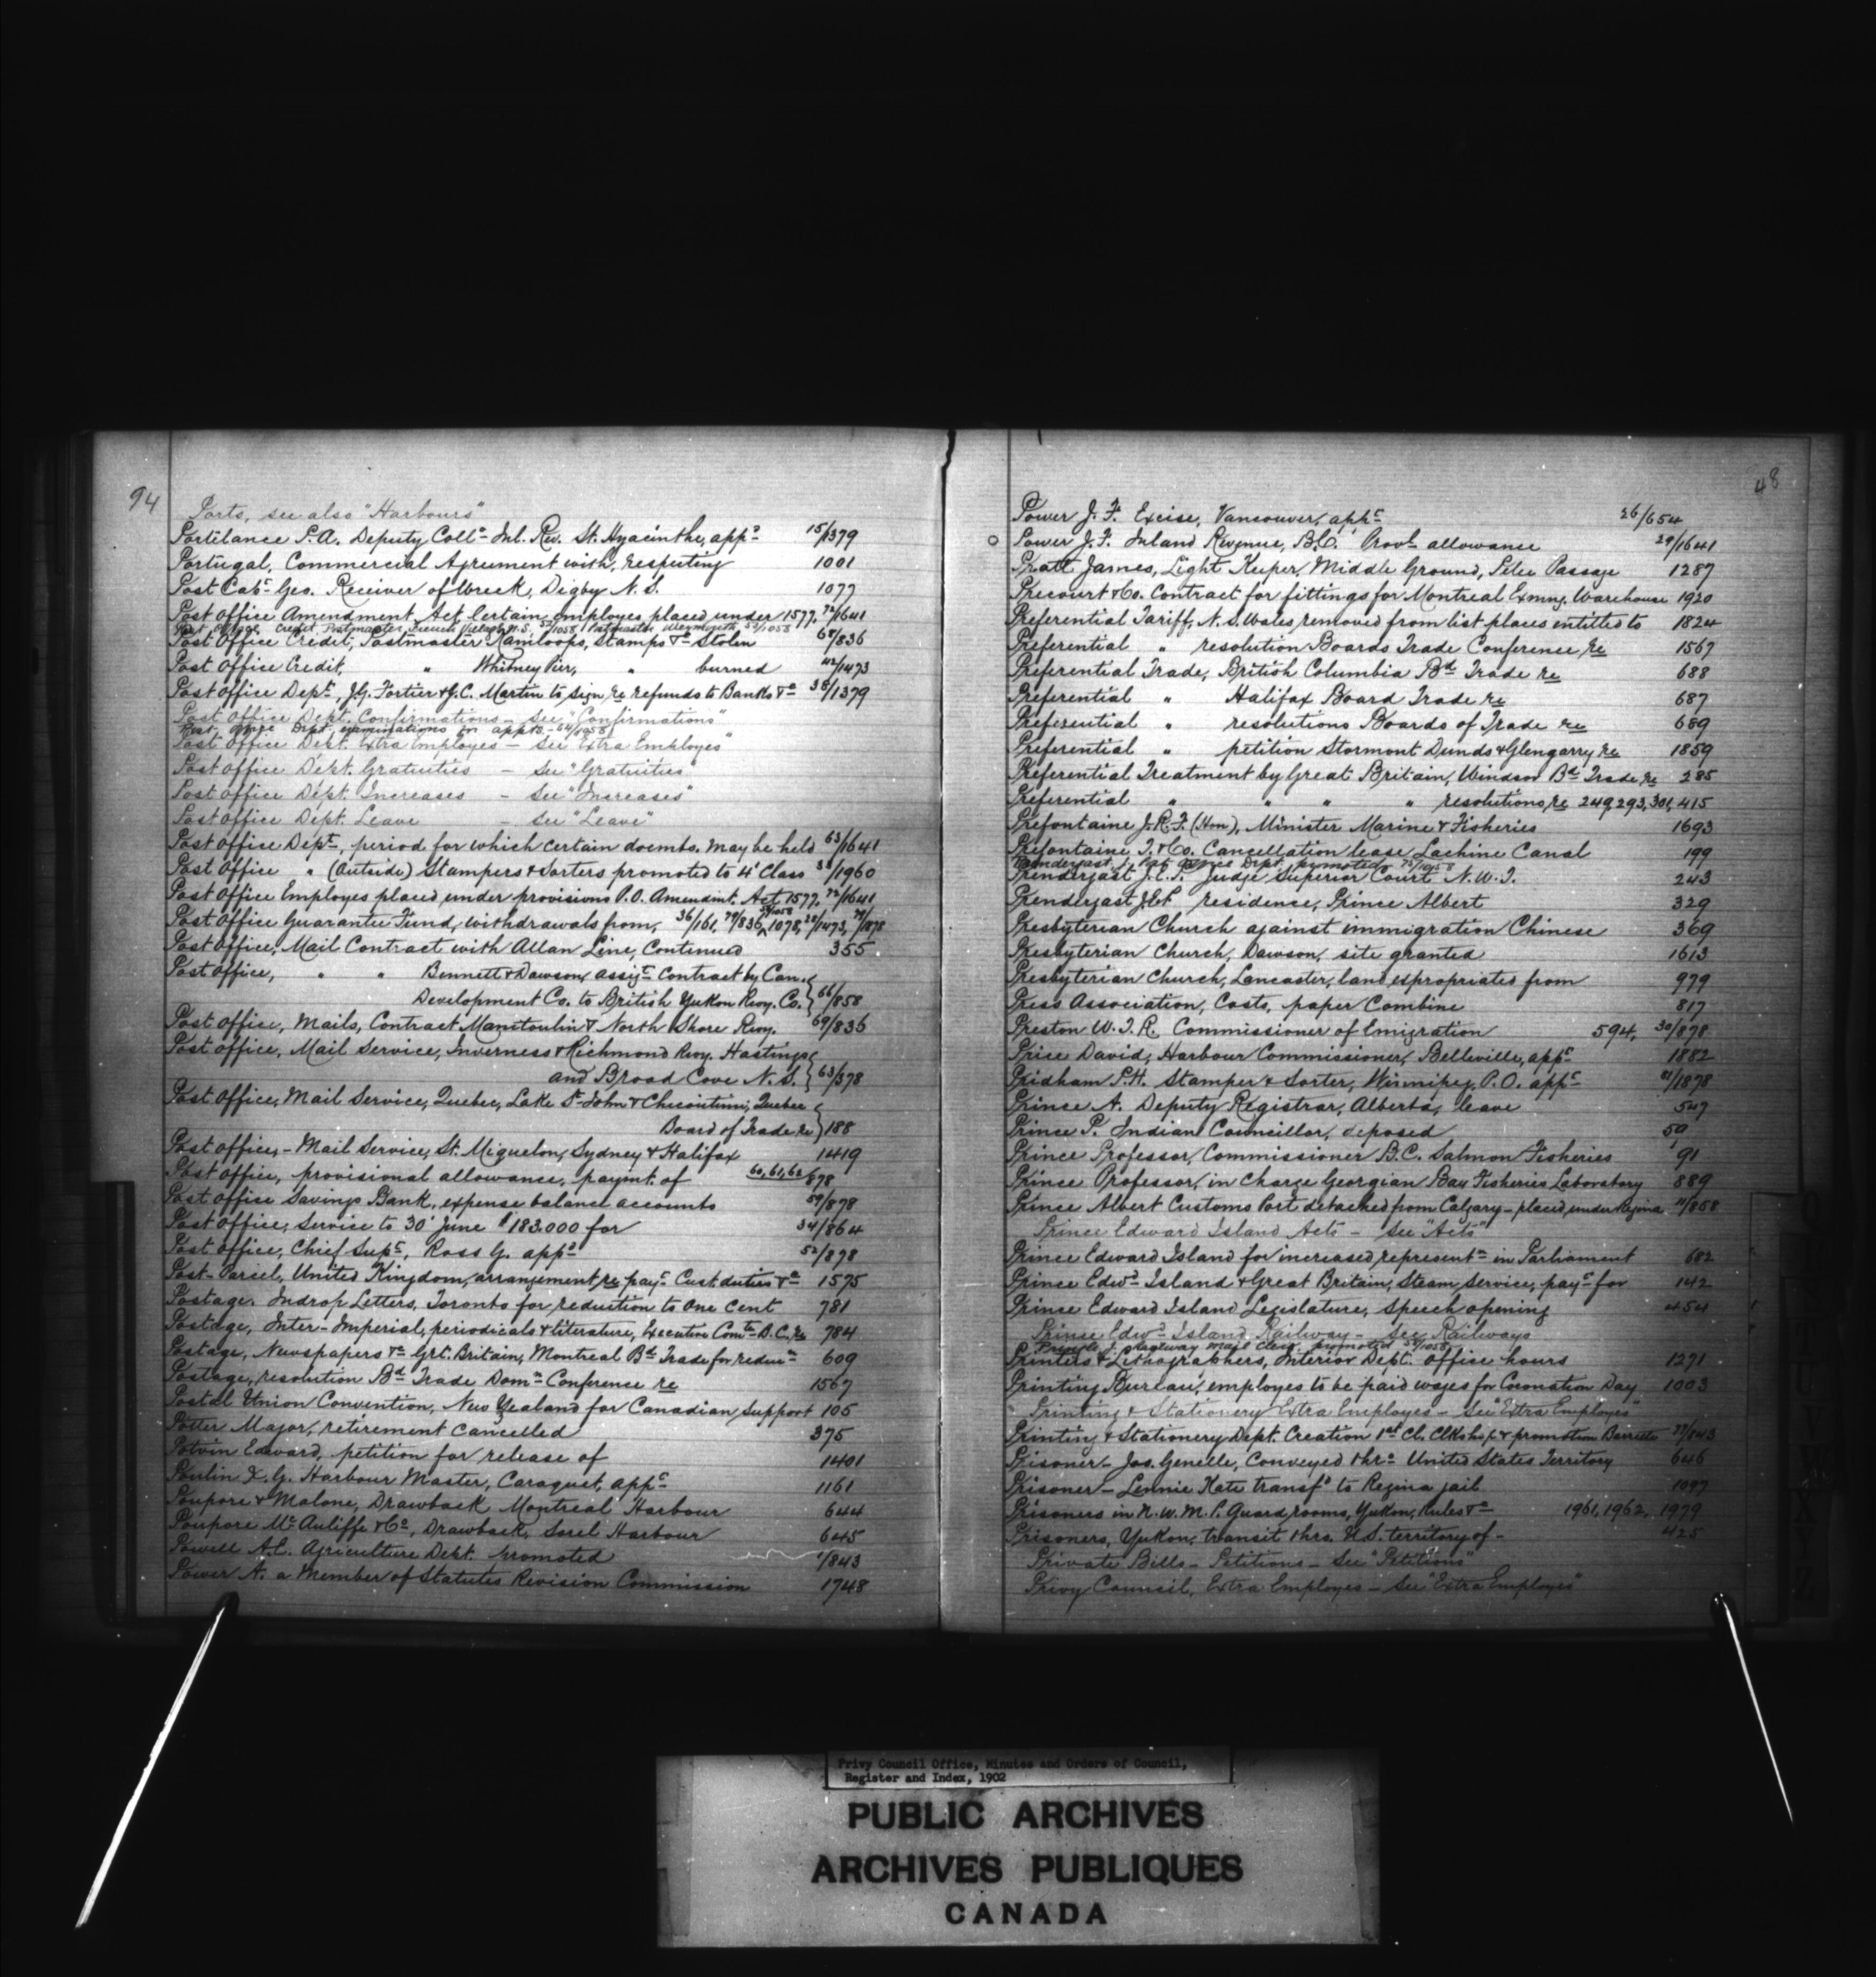 94
Ports, see also "Harbours"
Portelance P.A. Deputy Coll. Inl. Rev. St. Hyacinthe, appt 15/1379
Portugal, Commercial Agreement with, respecting 1001
Post Capt. Geo. Receiver of Wreck, Digby N.S. 1077
Post Office Amendment Act Certain employes placed under 1577, 72/1641
Post Office Credit Postmaster French Village N.S. 53/1058 Postmaster Weymouth 54/1058
Post Office Credit, Postmaster Kamloops, Stamps &c Stolen 68/836
Post Office Credit, " Whitney Pier, " burned 42/1473
Post Office Dept, J.G. Fortier & J.C. Martin to sign re refunds to Banks &c 38/1379
Post Office Dept. Confirmations - See "Confirmations"
Post Office Dept. examinations on appts - 64/1058
Post Office Dept. Extra Employes - See "Extra Employes"
Post Office Dept. Gratuities - See "Gratuities"
Post Office Dept. Increases - See "Increases"
Post Office Dept. Leave - See "Leave"
Post Office Dept, period for which certain docmts. may be held 63/1641
Post Office " (Outside) Stampers & Sorters promoted to 4' Class /1960
Post Office Employes placed under provisions P.O. Amendmt. Act 1577, 72/1641
Post Office Guarantee Fund, withdrawals from, 36/161, 70/836, /1058 1078, 28/1473, 79/1878
Post Office, Mail Contract with Allan Line, Continued 355
Post Office, " " Bennett & Dawson, assigt Contract by Can.
Development Co. to British Yukon Rwy. Co. 66/858
Post Office, Mails, Contract Manitoulin & North Shore Rwy. 69/836
Post Office, Mail Service, Inverness & Richmond Rwy. Hastings
and Broad Cove N.S. 63/378
Post Office, Mail Service, Quebec, Lake St John & Chicoutimi, Quebec
Board of Trade re 188
Post Office, - Mail Service, St. Miquelon, Sydney & Halifax 1419
Post Office, provisional allowance, paymt. of 60, 61, 62/878
Post Office Savings Bank, expense balance accounts 59/878
Post Office, Service to 30' June $183.000 for 34/864
Post Office, Chief Supt, Ross G. appt 52/878
Post-Parcel, United Kingdom, arrangement re payt Cust. duties &c 1575
Postage. Indrop Letters, Toronto for reduction to one cent 781
Postage, Inter-Imperial, periodicals & literature, Executive Comte B.C. re 784
Postage, Newspapers &c Grt. Britain, Montreal Bd Trade for reducn 609
Postage, resolution Bd Trade Domn Conference re 1567
Postal Union Convention, New Zealand for Canadian support 105
Potter Major, retirement cancelled 375
Potvin Edward, petition for release of 1401
Poulin X.G. Harbour Master, Caraquet, appt 1161
Poupore & Malone, Drawback Montreal Harbour 644
Poupore McAuliffe & Co, Drawback, Sorel Harbour 645
Powell A.C. Agriculture Dept. promoted 1/843
Power A. a Member of Statutes Revision Commission 1748
48
Power J.F. Excise, Vancouver, appt 26/654
Power J.F. Inland Revenue, B.C. Provl allowance 29/1641
Pratt James, Light Keeper, Middle Ground, Pelee Passage 1287
Precourt & Co. Contract for fittings for Montreal Exmng. Warehouse 1920
Preferential Tariff, N.S. Wales removed from list places entitled to 1824
Preferential " resolution Boards Trade Conference, re 1567
Preferential Trade, British Columbia Bd Trade re 688
Preferential " Halifax Board Trade re 687
Preferential " resolutions Boards of Trade re 689
Preferential " petition Stormont Dundas & Glengarry re 1859
Preferential Treatment by Great Britain, Windsor Bd Trade, re 285
Preferential " " " " resolutions, re 249, 293, 301, 415
Prefontaine J.R.F. (Hon), Minister Marine & Fisheries 1693
Prefontaine T. & Co. Cancellation lease Lachine Canal 199
Prendergast J. Post Office Dept. promoted 75/1058
Prendergast J.E.P. Judge Superior Court N.W.T. 243
Prendergast J.E.P. residence, Prince Albert 329
Presbyterian Church against immigration Chinese 369
Presbyterian Church, Dawson, site granted 1613
Presbyterian Church, Lancaster, land expropriated from 979
Press Association, Costs, paper Combine 817
Preston W.T.R. Commissioner of Emigration 594, 30/878
Price David, Harbour Commissioner, Belleville, appt 1882
Pridham P.H. Stamper & Sorter, Winnipeg, P.O. appt 81/1878
Prince A. Deputy Registrar, Alberta, leave 547
Prince P. Indian Councillor, deposed 50
Prince Professor, Commissioner B.C. Salmon Fisheries 91
Prince Professor, in Charge Georgian Bay Fisheries Laboratory 889
Prince Albert Customs Port detached from Calgary - placed under Regina 11/858
Prince Edward Island Acts - See "Acts"
Prince Edward Island for increased representn in Parliament 682
Prince Edwd Island & Great Britain, Steam Service, payt for 142
Prince Edward Island Legislature, Speech opening 454
Prince Edwd Island Railway - See Railways
Pringle J. Railway Mail Clerk promoted /1058
Printers & Lithographers, Interior Dept. Office hours 1271
Printing Bureau, employes to be paid wages for Coronation Day 1003
Printing & Stationery Extra Employes - See "Extra Employes"
Printing & Stationery Dept. Creation 1st Cl. Clkshp. & promotion Barrette /843
Prisoner - Jos. Genelle, Conveyed thro United States Territory 646
Prisoner - Lennie Kate transfd to Regina jail 1097
Prisoners in N.W.M.P. Guard rooms, Yukon, Rules &c 1961, 1962, 1979
Prisoners, Yukon, transit thro. U.S. territory of - 425
Private Bills - Petitions - See "Petitions"
Privy Council, Extra Employes - See "Extra Employes"
Privy Council Office, Minutes and Orders of Council,
Register and Index, 1902
PUBLIC ARCHIVES
ARCHIVES PUBLIQUES
CANADA